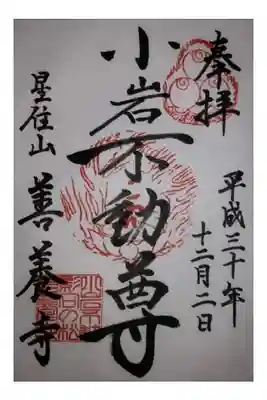 奉拝
平成三十年
十二月二日
小岩不動尊
星住山 善養寺